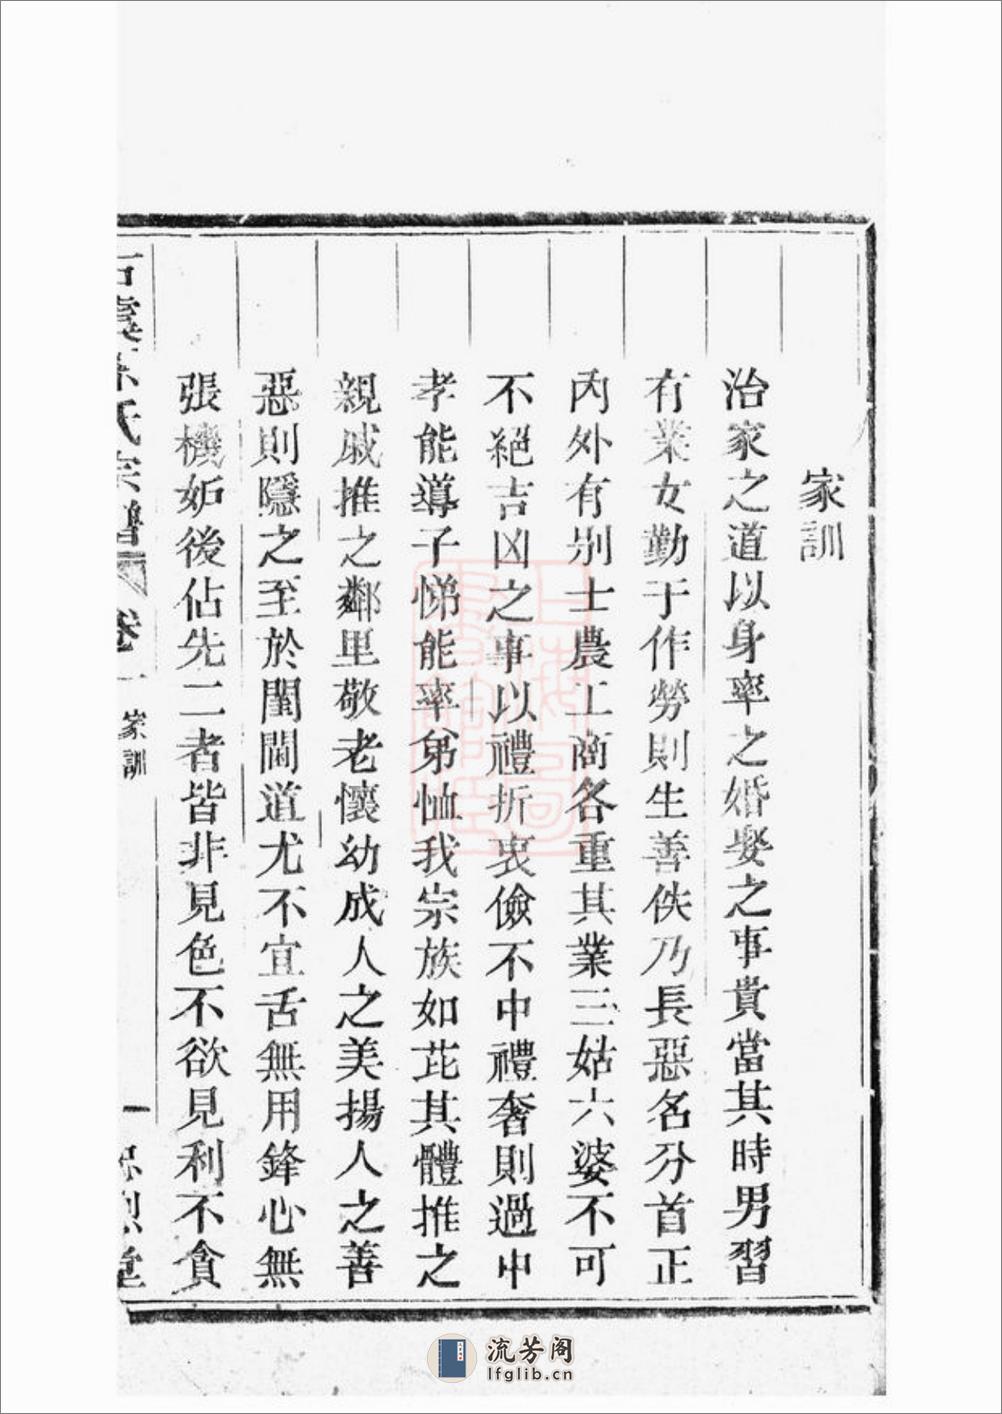 家訓
治家之道以身率之婚娶之事貴當其時男習
有業女勤于作勞則生善佚乃長惡名分首正
內外有别士農工商各重其業三姑六婆不可
不絕吉凶之事以禮折衷儉不中禮奢則過中
孝能導子悌能率弟恤我宗族如芘其體推之
親戚推之鄰里敬老懷幼成人之美揚人之善
惡則隱之至於閨閫道尤不宜舌無用鋒心無
張機妬後佔先二者皆非見色不欲見利不貪
氏宗譜
卷一
家訓
一
堂
流芳阁
lfglib.cn